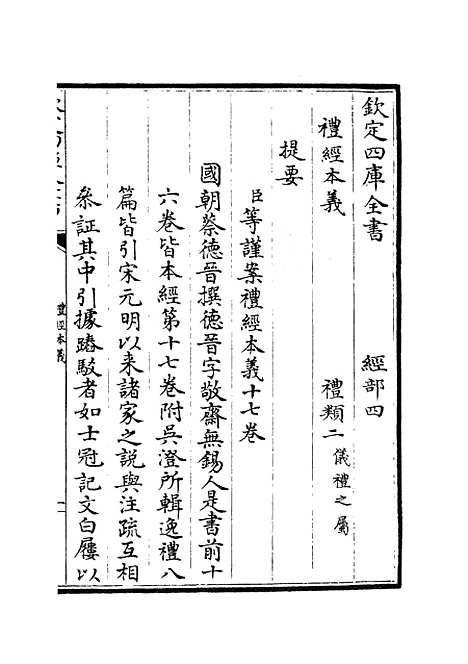 欽定四庫全書　經部四
禮經本義　禮類二 儀禮之屬
提要
臣等謹案禮經本義十七卷
國朝蔡德晉撰德晉字敬齋無錫人是書前十
六卷皆本經第十七卷附吳澄所輯逸禮八
篇皆引宋元明以來諸家之說與注疏互相
叅証其中引據踳駁者如士冠記文白屨以
禮經本義
一